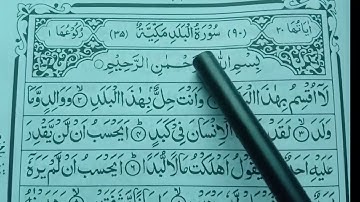 اٰیَاتُهَا ٢٠ (٩٠) سُوْرَةُ الْبَلَدِ مَكِّیَّةٌ (٣٥) رُكُوْعُهَا ١
بِسْمِ اللّٰهِ الرَّحِیْمِ
لَاۤ اُقْسِمُ بِهٰذَا الْبَلَدِ ۙ وَاَنْتَ حِلٌّۢ بِهٰذَا الْبَلَدِ ۙ وَوَالِدٍ وَّمَا
وَلَدَ ۙ لَقَدْ الْاِنْسَانَ فِیْ كَبَدٍ ؕ اَیَحْسَبُ اَنْ لَّنْ یَّقْدِرَ
عَلَیْهِ اَحَدٌ یَقُوْلُ اَهْلَكْتُ مَالًا لُّبَدًا ؕ اَیَحْسَبُ اَنْ لَّمْ یَرَهٗۤ